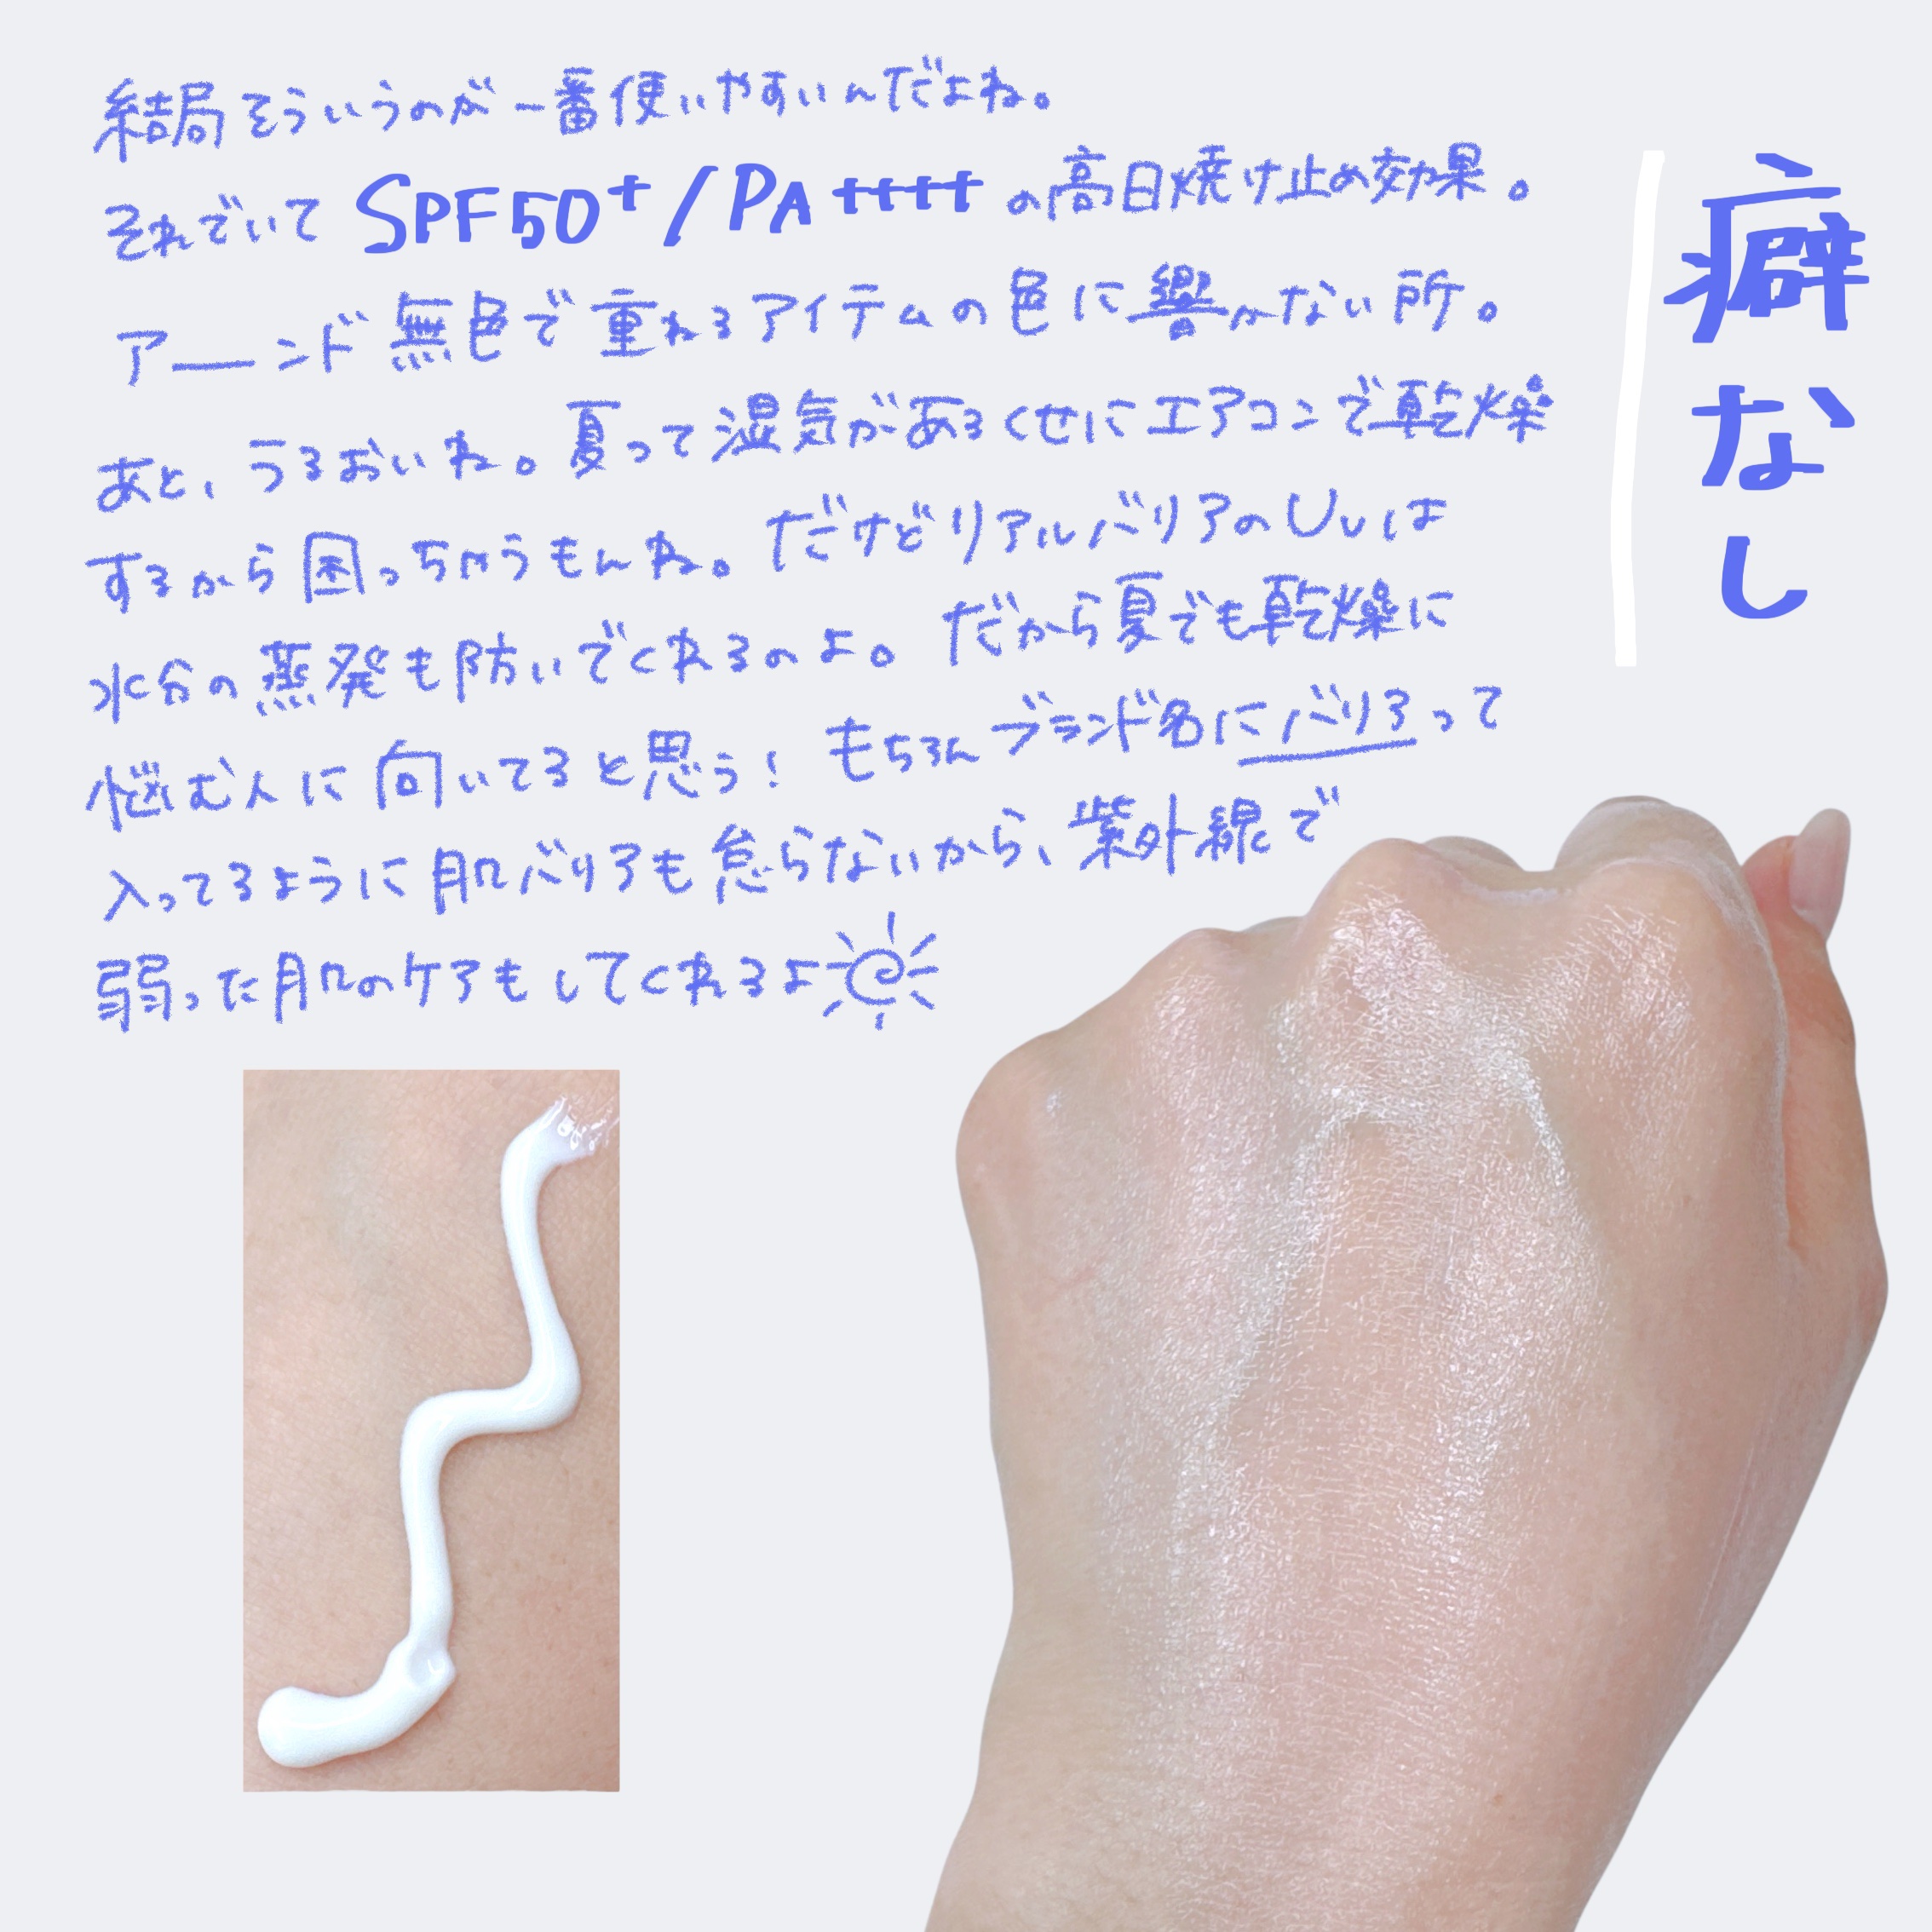 癖なし
結局そういうのが一番使いやすいんだよね。
それでいてSPF50+/PA++++の高日焼け止め効果。
アーンド無色で重ねるアイテムの色に響かない所。
あと、うるおいね。夏って湿気があるくせにエアコンで乾燥
するから困っちゃうもんね。だけどリアルバリアのUVは
水分の蒸発も防いでくれるのよ。だから夏でも乾燥に
悩む人に向いてると思う！もちろんブランド名にバリアって
入ってるように肌バリアも怠らないから、紫外線で
弱った肌のケアもしてくれるよ